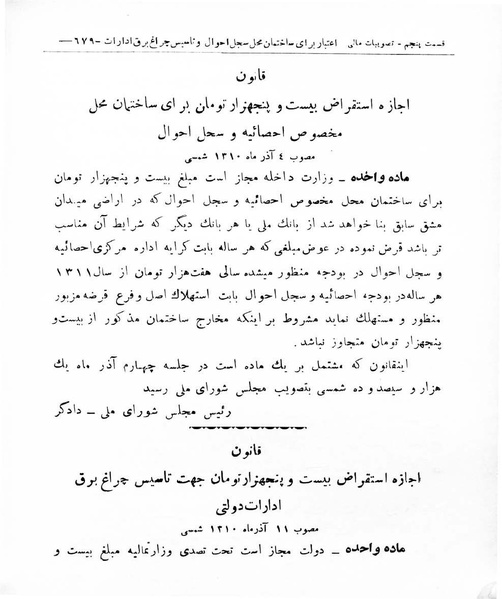 قسمت پنجم - تصویبات مالی اعتبار برای ساختمان محل سجل احوال و تاسیس چراغ برق ادارات -۶۷۹-
قانون
اجازه استقراض بیست و پنجهزار تومان برای ساختمان محل
مخصوص احصائیه و سجل احوال
مصوب ٤ آذر ماه ۱۳۱۰ شمسی
ماده واحده - وزارت داخله مجاز است مبلغ بیست و پنجهزار تومان
برای ساختمان محل مخصوص احصائیه و سجل احوال که در اراضی میدان
مشق سابق بنا خواهد شد از بانك ملی یا هر بانك دیگر که شرایط آن مناسب
تر باشد قرض نموده در عوض مبلغی که هر ساله بابت کرایه اداره مرکزی احصائیه
و سجل احوال در بودجه منظور میشده سالی هفت هزار تومان از سال ۱۳۱۱
هر ساله در بودجه احصائیه و سجل احوال بابت استهلاك اصل و فرع قرضه مزبور
منظور و مستهلك نماید مشروط بر اینکه مخارج ساختمان مذکور از بیست و
پنجهزار تومان متجاوز نباشد .
اینقانون که مشتمل بر یك ماده است در جلسه چهارم آذر ماه یك
هزار و سیصد و ده شمسی بتصویب مجلس شورای ملی رسید
رئیس مجلس شورای ملی - دادگر
قانون
اجازه استقراض بیست و پنجهزار تومان جهت تاسیس چراغ برق
ادارات دولتی
مصوب ۱۱ آذر ماه ۱۳۱۰ شمسی
ماده واحده - دولت مجاز است تحت تصدی وزارتمالیه مبلغ بیست و